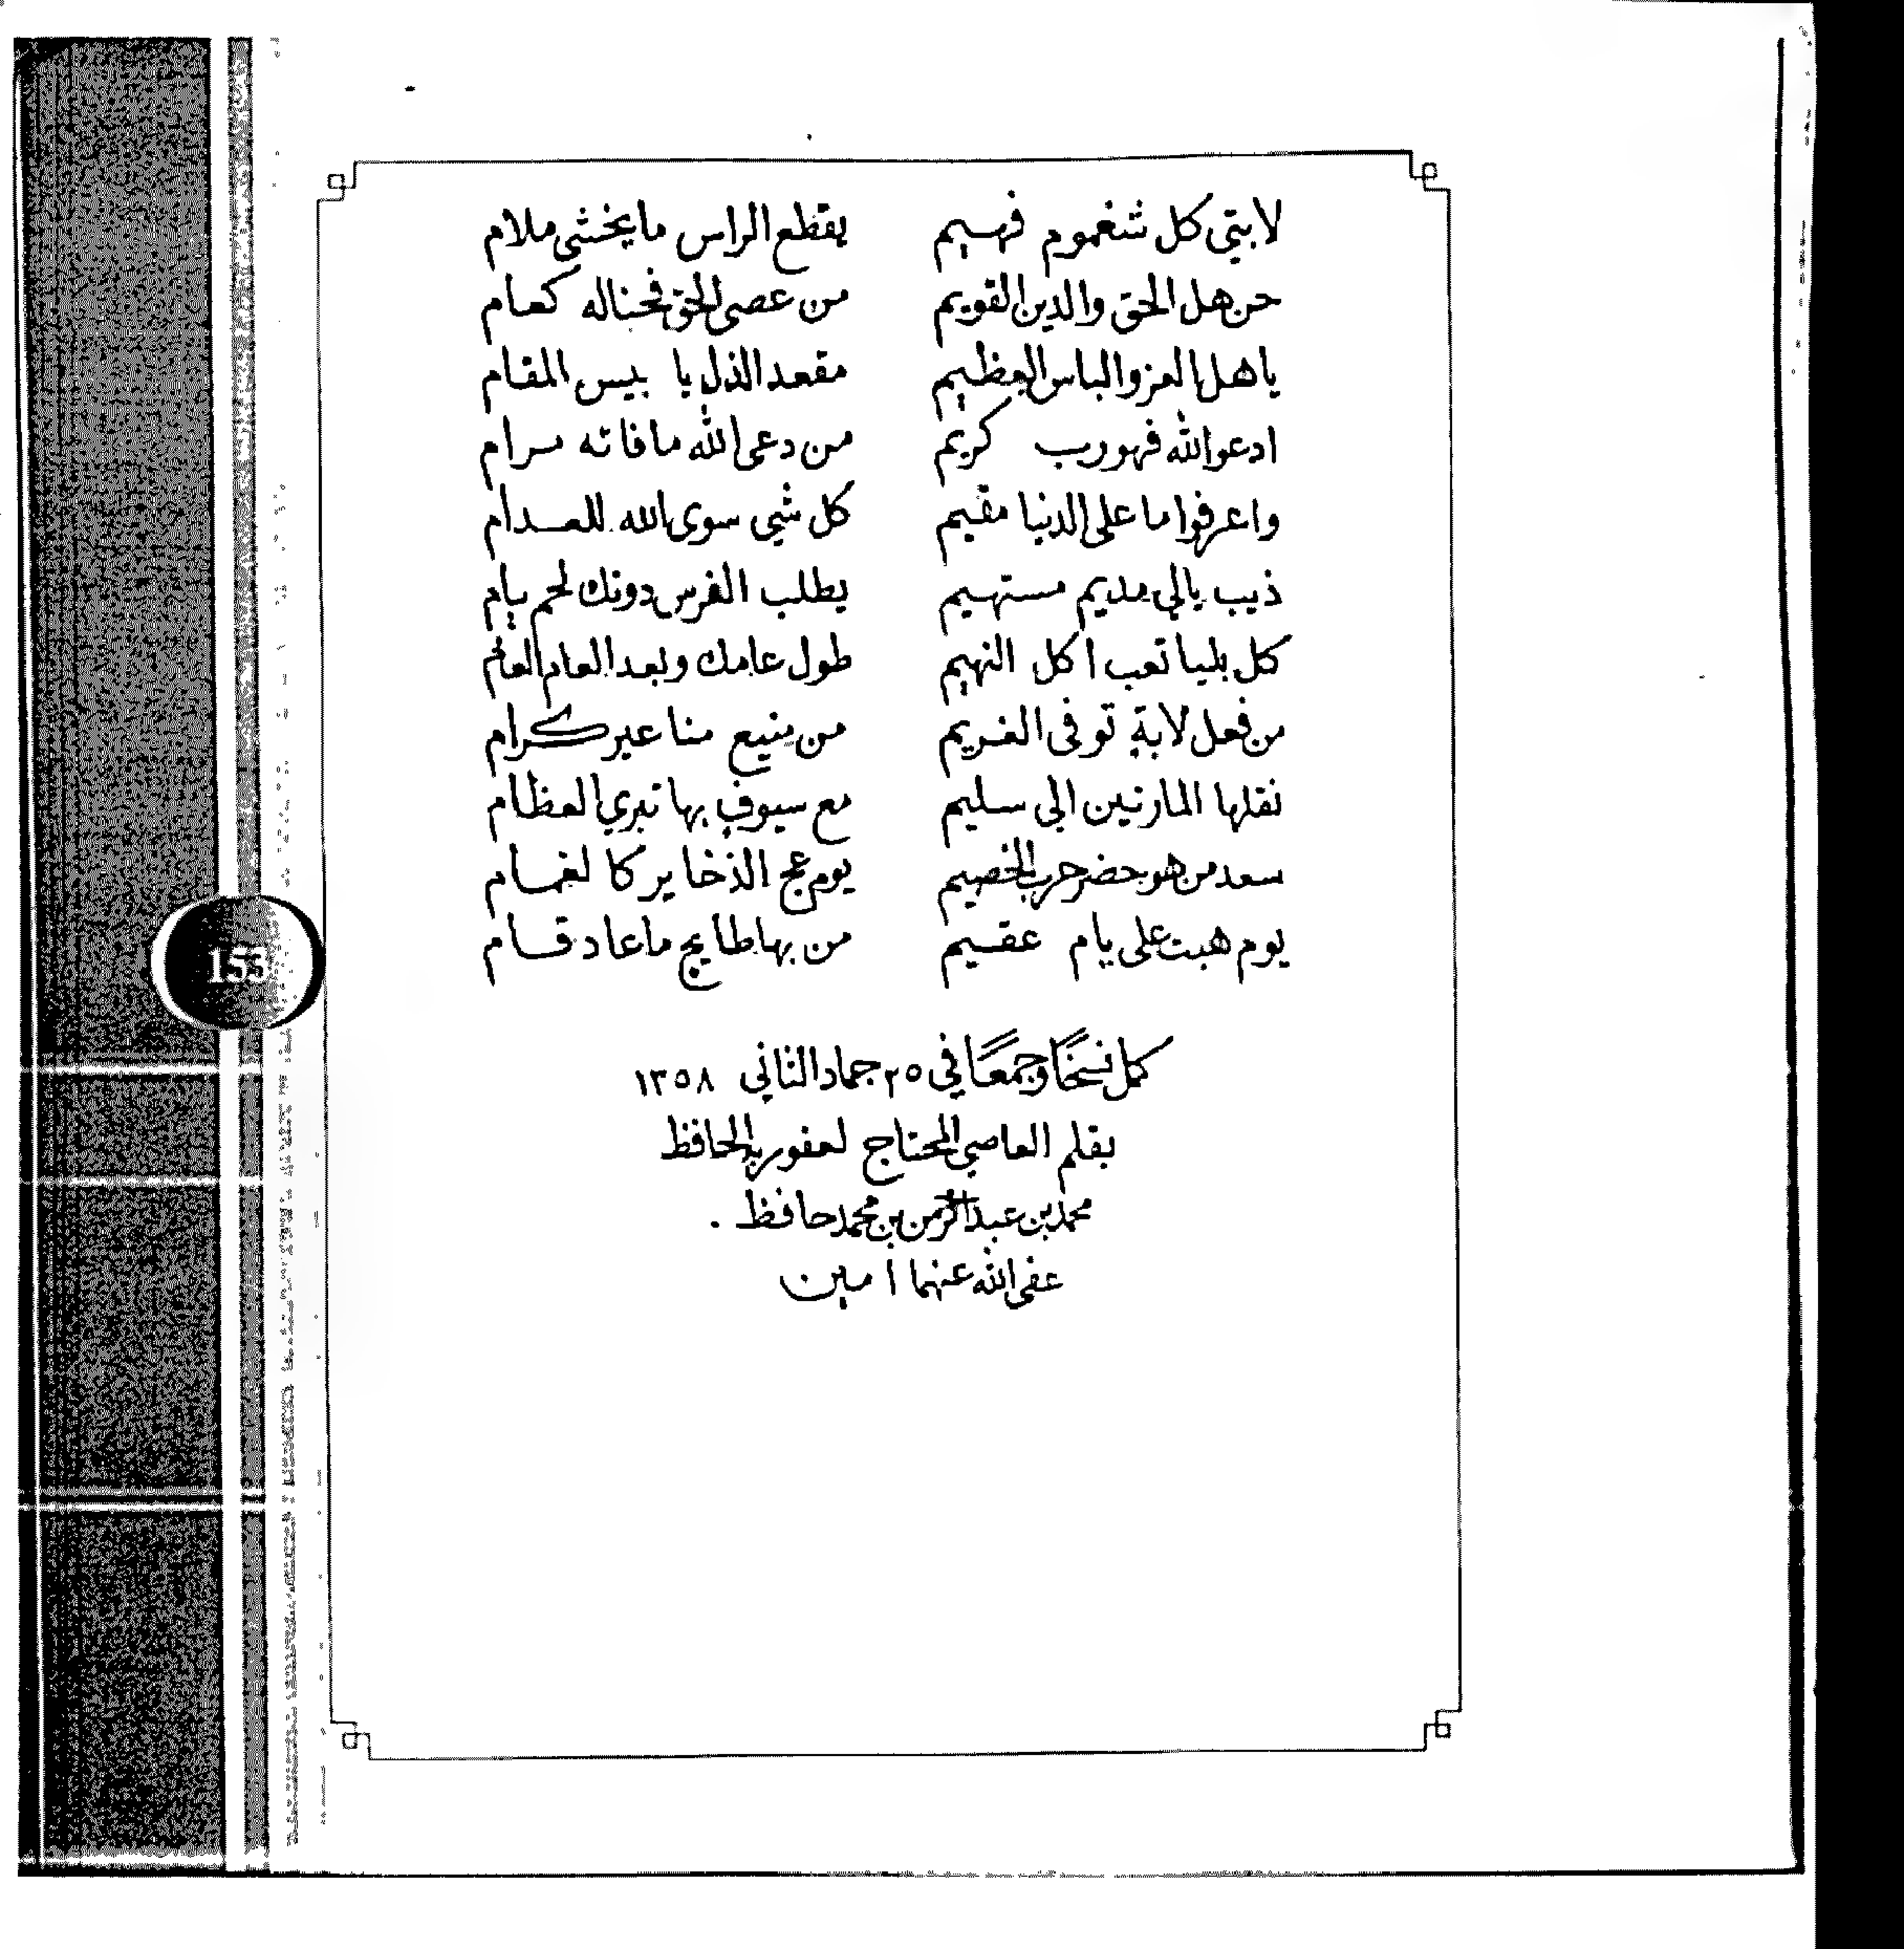 لابتي كل شغموم فهيم يقطع الراس ما يخشى ملام
حن هل الحق والدين القويم من عصى الحق فحناله كعام
يا هل العز والباس العظيم مقعد الذل يا بيس المقام
ادعوا الله فهو رب كريم من دعى الله ما فاته مرام
واعرفوا ما على الدنيا مقيم كل شي سوى الله للعدام
ذيب يالي مديم مستهيم يطلب الفرس دونك لحم يام
كل بليا تعب اكل النهيم طول عامك وبعد العام العام
من فعل لابةٍ توفى الغريم من منيع منا عبر كرام
نقلها المارتين الي سليم مع سيوفٍ بها تبري العظام
سعد من هو حضر حرب الخصيم يوم عج الذخاير كا لغمام
يوم هبت على يام عقيم من بها طايح ما عاد قام
كمل نسخًا وجمعًا في ٢٥ جماد الثاني ١٣٥٨
بقلم العاصي المحتاج لعفو ربه الحافظ
محمد بن عبد الرحمن بن محمد حافظ .
عفى الله عنهما امين
153